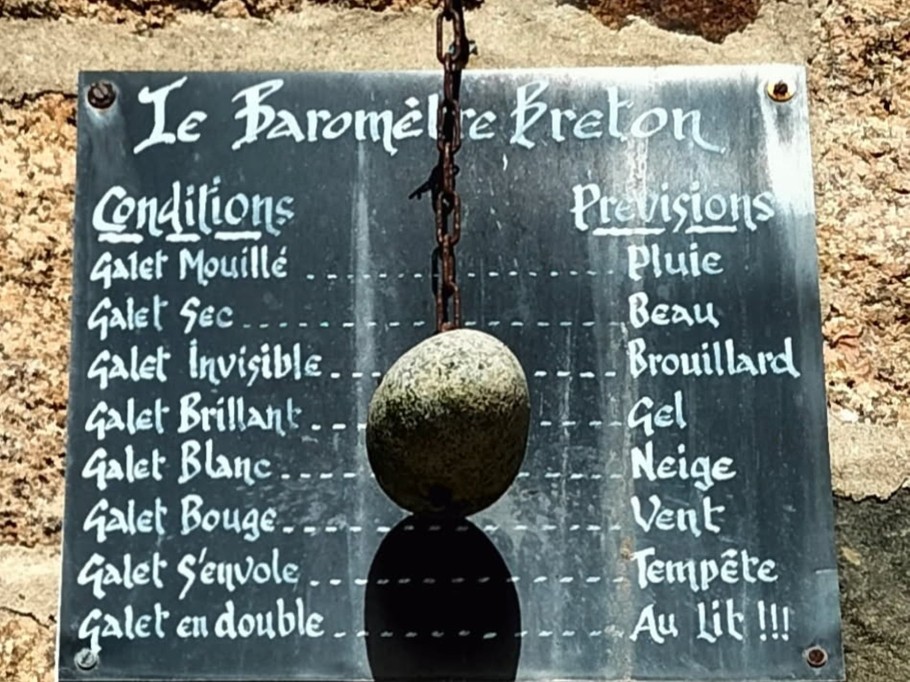 Le Baromètre Breton
Conditions Prévisions
Galet Mouillé ..................... Pluie
Galet Sec ..................... Beau
Galet Invisible ..................... Brouillard
Galet Brillant ..................... Gel
Galet Blanc ..................... Neige
Galet Bouge ..................... Vent
Galet s'envole ..................... Tempête
Galet en double ..................... Au Lit !!!